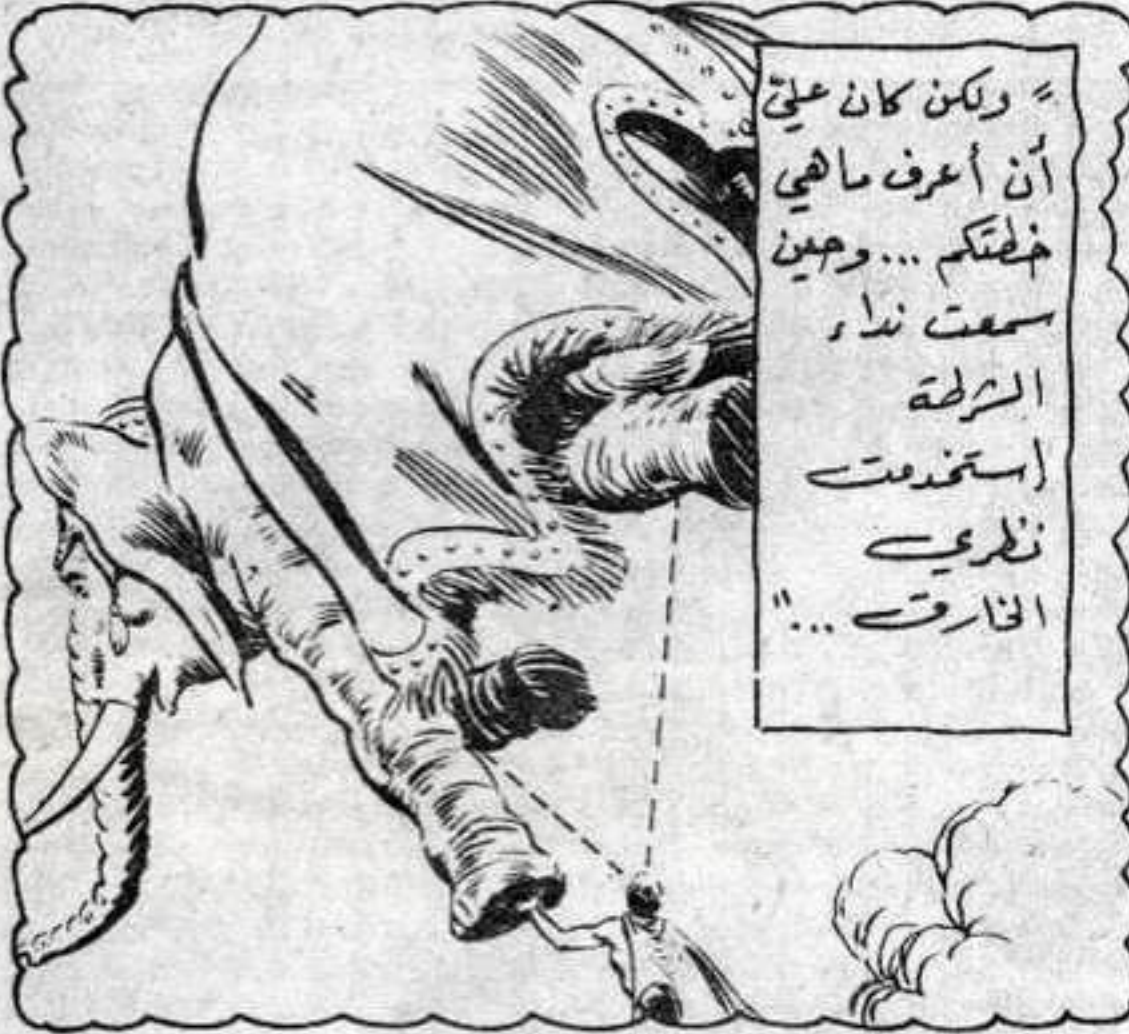 " ولكن كان عليّ
أن أعرف ماهي
خطتكم ... وحين
سمعت نداء
الشرطة
استخدمت
نظري
الخارق ... "